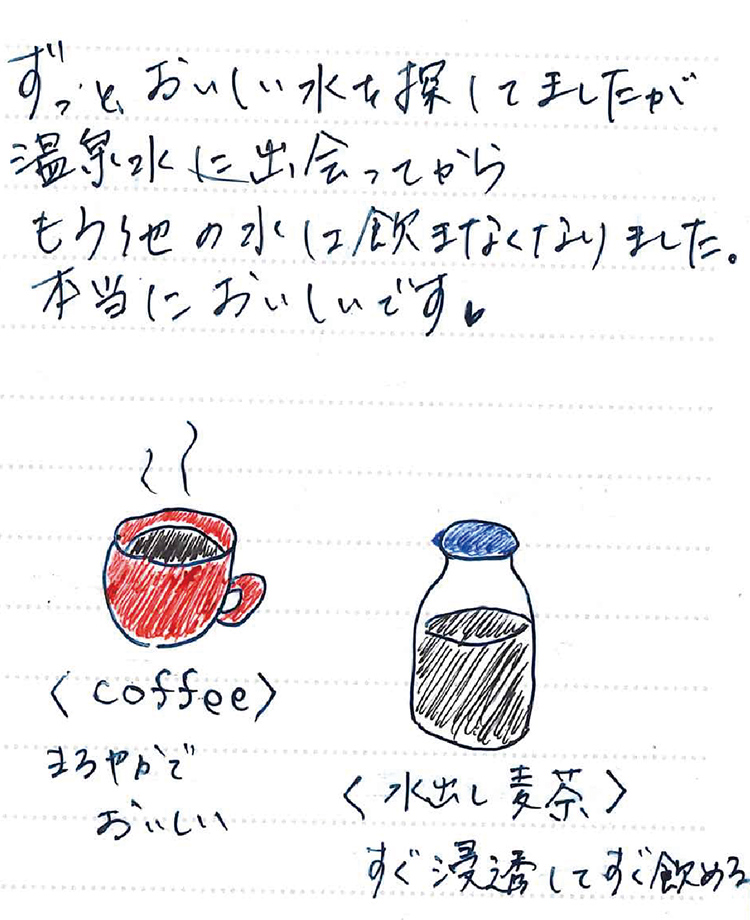 ずっと、おいしい水を探してましたが
温泉水に出会ってから
もう他の水は飲まなくなりました。
本当においしいです♥
〈coffee〉
まろやかで
おいしい
〈水出し麦茶〉
すぐ浸透してすぐ飲める